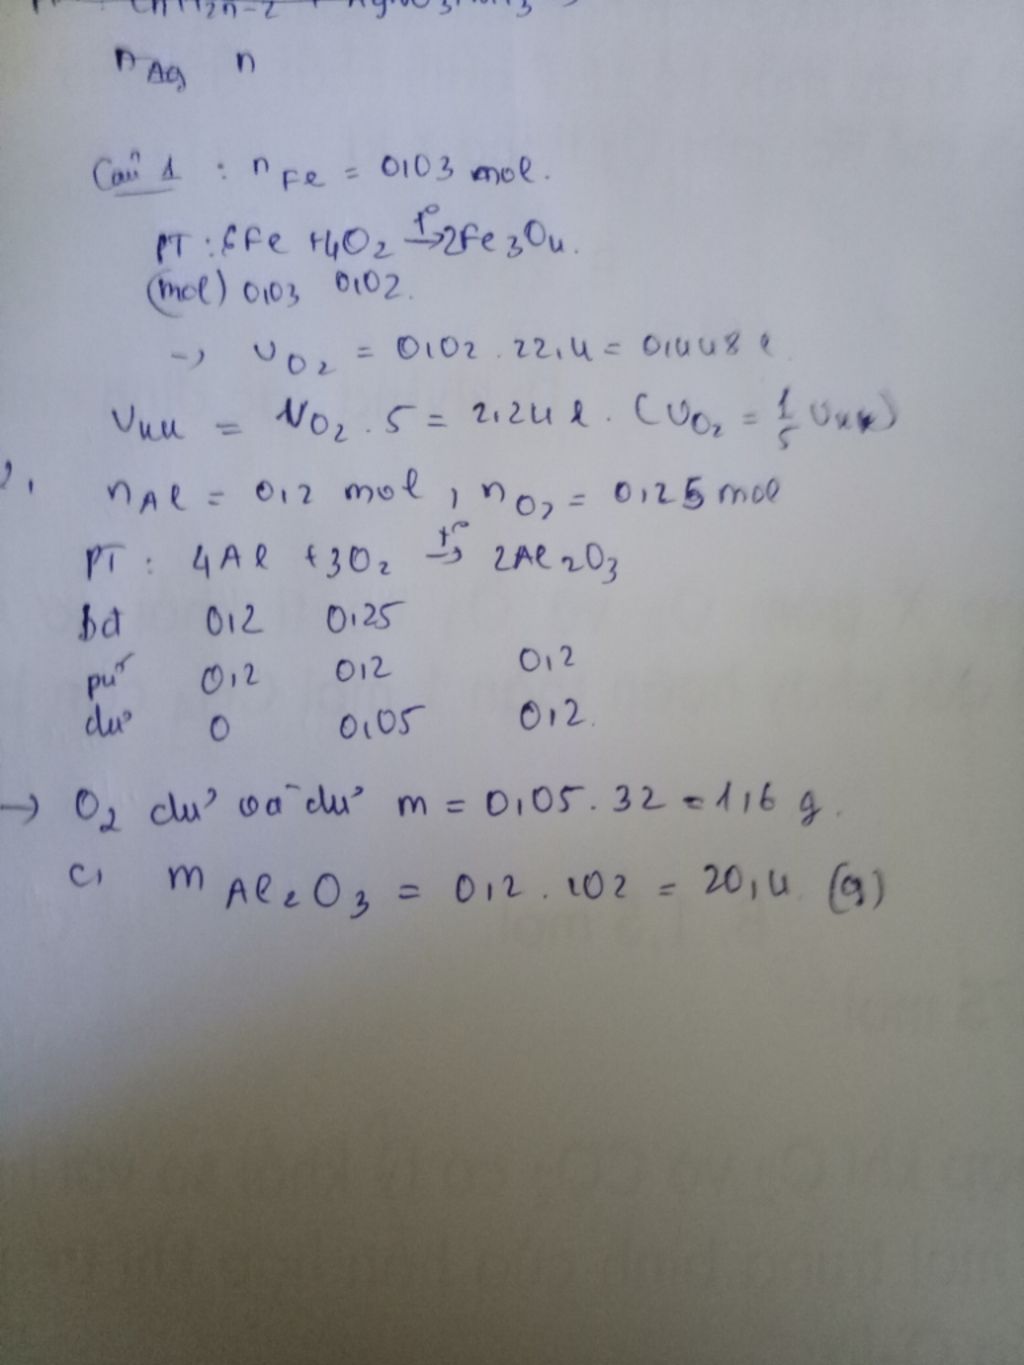 n Ag n
Câu 1 : n Fe = 0,03 mol.
PT : 6Fe + 4O2 t°→ 2Fe3O4.
(mol) 0,03 0,02.
→ VO2 = 0,02 . 22,4 = 0,448 l
Vkk = VO2 . 5 = 2,24 l. (VO2 = 1/5 Vkk)
2, nAl = 0,2 mol, nO2 = 0,25 mol
PT : 4Al + 3O2 t°→ 2Al2O3
bđ 0,2 0,25
pư 0,2 0,2 0,2
dư 0 0,05 0,2.
→ O2 dư và dư m = 0,05 . 32 = 1,6 g.
c, m Al2O3 = 0,2 . 102 = 20,4 (g)